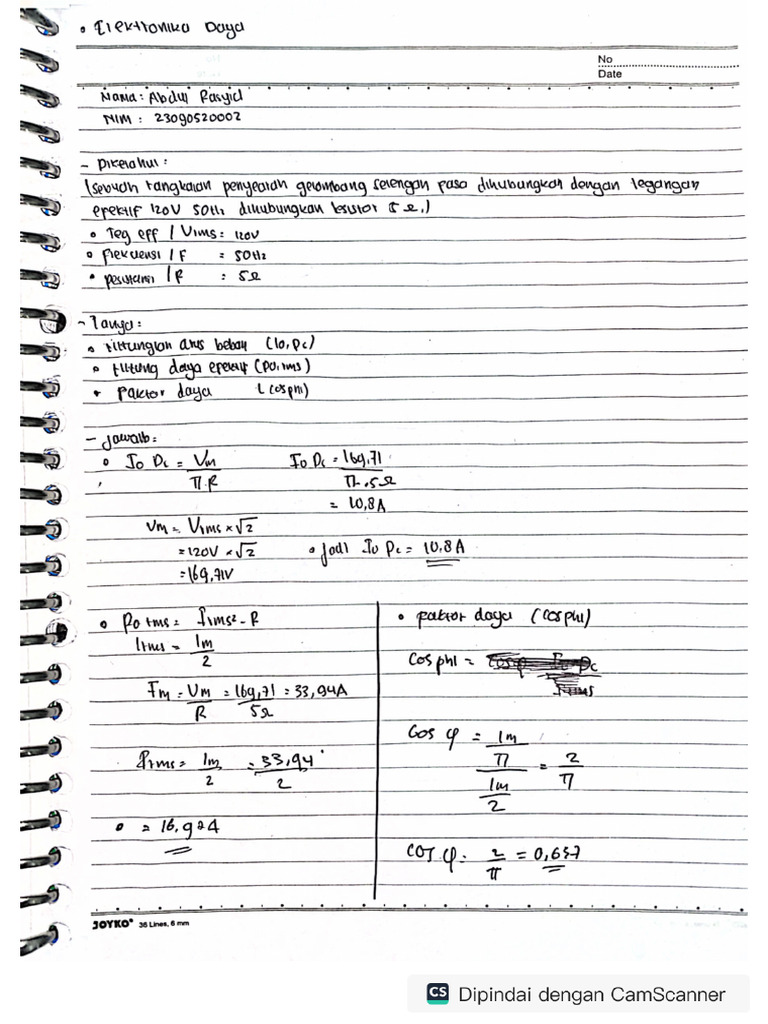 • Elektronika Daya
No
Date
Nama: Abdul Rasyid
NIM : 23090520002
- Diketahui :
(sebuah rangkaian penyearah gelombang setengah fasa dihubungkan dengan tegangan
efektif 120V 50Hz dihubungkan resistor 5 Ω.)
• Teg eff / Vrms = 120V
• Frekuensi / F = 50Hz
• resistansi / R : 5Ω
- Tanya :
• Hitunglah arus beban (Io, Dc)
• Hitung daya efektif (Po, rms)
• Faktor daya (cos phi)
- Jawab :
• Io Dc = Vm / π.R
Io Dc = 169,71 / π . 5Ω
= 10,8A
Vm = Vrms × √2
= 120V × √2
= 169,71V
• Jadi Io Dc = 10,8 A
• Po rms = Irms² - R
Irms = Im / 2
Im = Vm / R = 169,71 / 5Ω = 33,94A
Irms = Im / 2 = 33,94 / 2
• = 16,97A
• Faktor daya (cos phi)
Cos phi =
Cos φ = Im / π / Im / 2 = 2 / π
COS φ = 2 / π = 0,637
JOYKO® 36 Lines, 6 mm
CS Dipindai dengan CamScanner